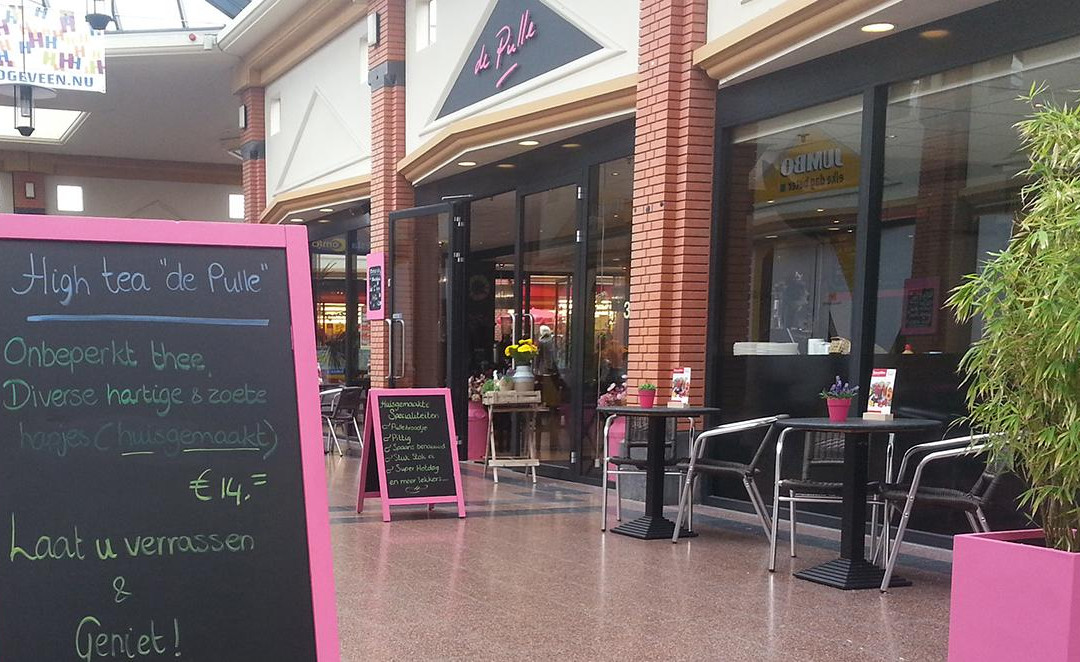 OGEVEEN.NU
de Pulle
JUMBO
elke dag beter
High tea "de Pulle"
Onbeperkt thee,
Diverse hartige & zoete
hapjes (huisgemaakt)
€14,=
Laat u verrassen
&
Geniet!
Huisgemaakte
Specialiteiten
Pullebroodje
Pittig
Spaans benauwd
Stuk Stok.n
Super Hotdog
en meer lekkers...
3